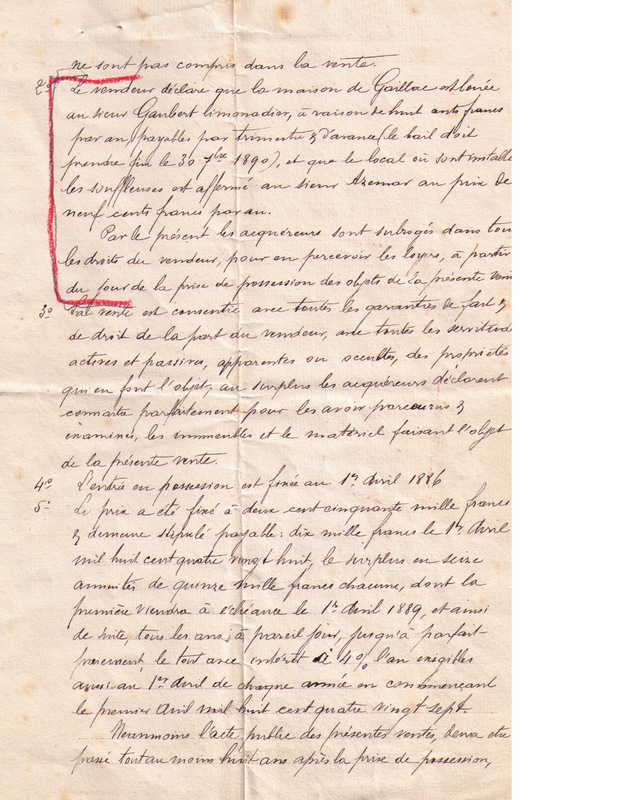 ne sont pas compris dans la vente.
2° Le vendeur déclare que la maison de Gaillac est louée
au sieur Gaubert limonadier, à raison de huit cents francs
par an, payables par trimestre & d'avance (le bail doit
prendre fin le 30 7bre 1890), et que le local où sont installé
les souffleuses est affermé au sieur Azemar au prix de
neuf cents francs par an.
Par le présent les acquéreurs sont subrogés dans tous
les droits du vendeur, pour en percevoir les loyers, à partir
du jour de la prise de possession des objets de la présente ven
3° La vente est consentie avec toutes les garanties de fait &
de droit de la part du vendeur, avec toutes les servitudes
actives et passives, apparentes ou occultes, des propriétés
qui en font l'objet; au surplus les acquéreurs déclarent
connaître parfaitement pour les avoir parcourus &
examinés, les immeubles et le matériel faisant l'objet
de la présente vente.
4° L'entrée en possession est fixée au 1er Avril 1886
5° Le prix a été fixé à deux cent cinquante mille francs
& demeure stipulé payable: dix mille francs le 1er Avril
mil huit cent quatre vingt huit, le surplus en seize
annuités de quinze mille francs chacune, dont la
première viendra à échéance le 1er Avril 1889, et ainsi
de suite, tous les ans, à pareil jour, jusqu'à parfait
paiement, le tout avec intérêt à 4% l'an exigibles
aussi au 1er Avril de chaque année en commençant
le premier Avril mil huit cent quatre vingt sept.
Néanmoins l'acte public des présentes ventes, devra être
passé tout au moins huit ans après la prise de possession,